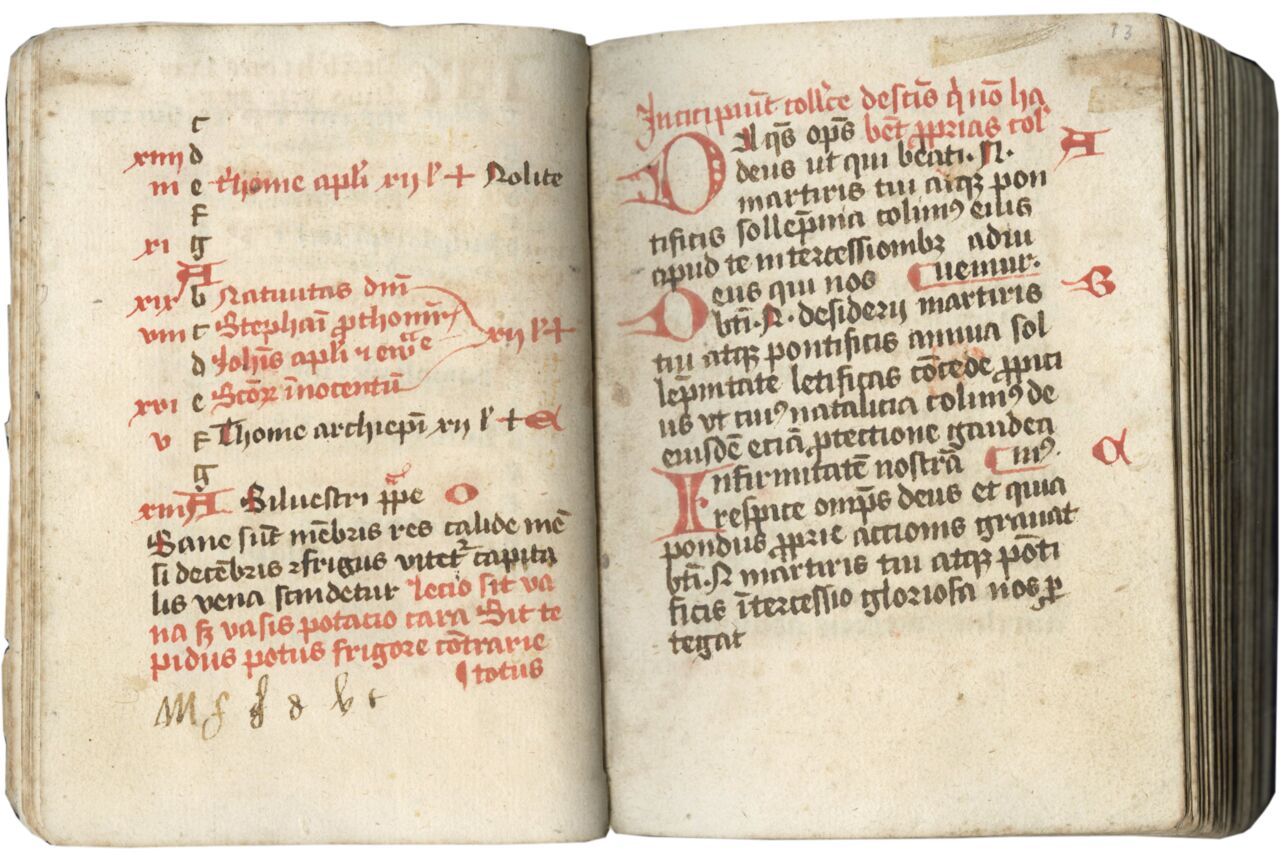 c
xiiii d
iii e thome apłi xii ł + Nolite
f
xi g
A
xix b Natiuitas dm̄
viii c Stephani ꝓthomr̄
d Johis apłi ⁊ ewᵉ xii ł +
xvi e Scōꝝ īnocentū
v f Thome archiepī xii ł + a
g
xiiij A Siluestri ppe O
Sane sūt mēbris res calide mē
si decēbris ꝛfrigus vitetᷣ capita
lis vena scindetur lecio sit va
na sꝫ vasis potacio cara Sit te
pidus potus frigore cōtrarie
¶ totus
13
Incicipiūt coll'ce de sc̄is q̇ nō ha
Da qs̄ ops̄ bēt ꝓprias col'
deus ut qui beati .N. A
martiris tui atqꝫ pon
tificis sollēpnia colimꝰ eius
apud te intercessionibꝫ adiu
Deus qui nos ¶ uemur.
bt̄i .N. desiderij martiris B
tui atqꝫ pontificis annua sol
lēpnitate letificas cōcede ꝓpici
us vt cuiꝰ natalicia colimꝰ de
eiusdē eciā ꝓtectione gaudea
Infirmitatē nostrā ¶ mꝰ. a
respice omp̄s deus et quia
pondus ꝓprie accionis grauat
bt̄i .N martiris tui atqꝫ pōti
ficis īntercessio gloriosa nos ꝓ
tegat